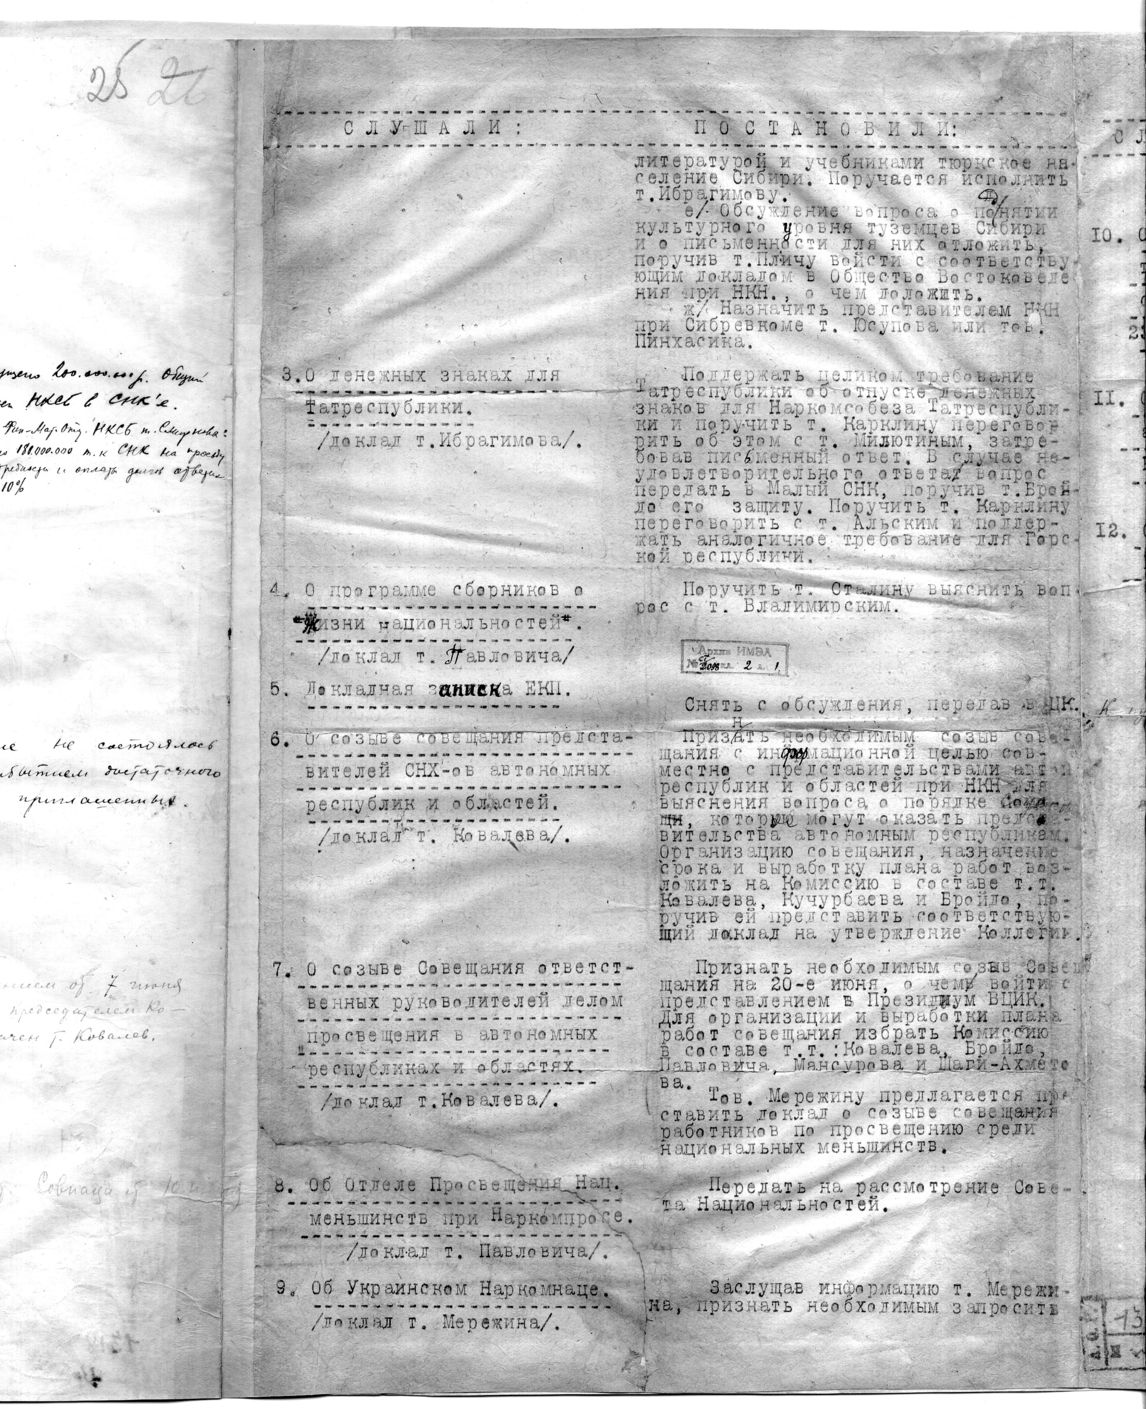 25 26
СЛУШАЛИ:
ПОСТАНОВИЛИ:
литературой и учебниками тюркское на-
селение Сибири. Поручается исполнить
т.Ибрагимову.
е/ Обсуждение вопроса о поднятии
культурного уровня туземцев Сибири
и о письменности для них отложить,
поручив т.Пличу войсти с соответству-
ющим докладом в Общество Востоковеде
ния при НКН., о чем доложить.
ж/ Назначить представителем НКН
при Сибревкоме т. Юсупова или тов.
Пинхасика.
3.О денежных знаках для
Татреспублики.
/доклад т.Ибрагимова/.
Поддержать целиком требование
Татреспублики об отпуске денежных
знаков для Наркомсобеза Татреспубли-
ки и поручить т. Карклину перегово-
рить об этом с т. Милютиным, затре-
бовав письменный ответ. В случае не-
удовлетворительного ответа вопрос
передать в Малый СНК, поручив т.Брой-
до его защиту. Поручить т. Карклину
переговорить с т. Альским и поддер-
жать аналогичное требование для Горс-
кой республики.
4. О программе сборников о
"Жизни национальностей".
/доклад т. Павловича/
Поручить т. Сталину выяснить воп-
рос с т. Владимирским.
Архив ИМЭЛ
5. Докладная записка ЕКП.
Снять с обсуждения, передав в ЦК.
6. О созыве совещания предста-
вителей СНХ-ов автономных
республик и областей.
/доклад т. Ковалева/.
Признать необходимым созыв сове-
щания с информационной целью сов-
местно с представительствами авт
республик и областей при НКН для
выяснения вопроса о порядке помо
щи, которую могут оказать предста-
вительства автономным республикам.
Организацию совещания, назначение
срока и выработку плана работ воз-
ложить на Комиссию в составе т.т.
Ковалева, Кучурбаева и Бройдо, по-
ручив ей представить соответствую-
щий доклад на утверждение Коллегии.
7. О созыве Совещания ответст-
венных руководителей делом
просвещения в автономных
республиках и областях.
/доклад т.Ковалева/.
Признать необходимым созыв Совещ
щания на 20-е июня, о чем войти с
представлением в Президиум ВЦИК.
Для организации и выработки плана
работ совещания избрать Комиссию
в составе т.т.:Ковалева, Бройдо,
Павловича, Мансурова и Шаги-Ахмето
ва.
Тов. Мережину предлагается пре
ставить доклад о созыве совещания
работников по просвещению среди
национальных меньшинств.
8. Об Отделе Просвещения Нац.
меньшинств при Наркомпросе.
/доклад т. Павловича/.
Передать на рассмотрение Сове-
та Национальностей.
9. Об Украинском Наркомнаце.
/доклад т. Мережина/.
Заслушав информацию т. Мережи-
на, признать необходимым запросить
200.000.000р. Общий
НКСБ в СНК'е.
10%
не состоялось
достаточного
приглашенных.
от 7 июня
председателем Ко-
т. Ковалев.
10.
11.
12.
13